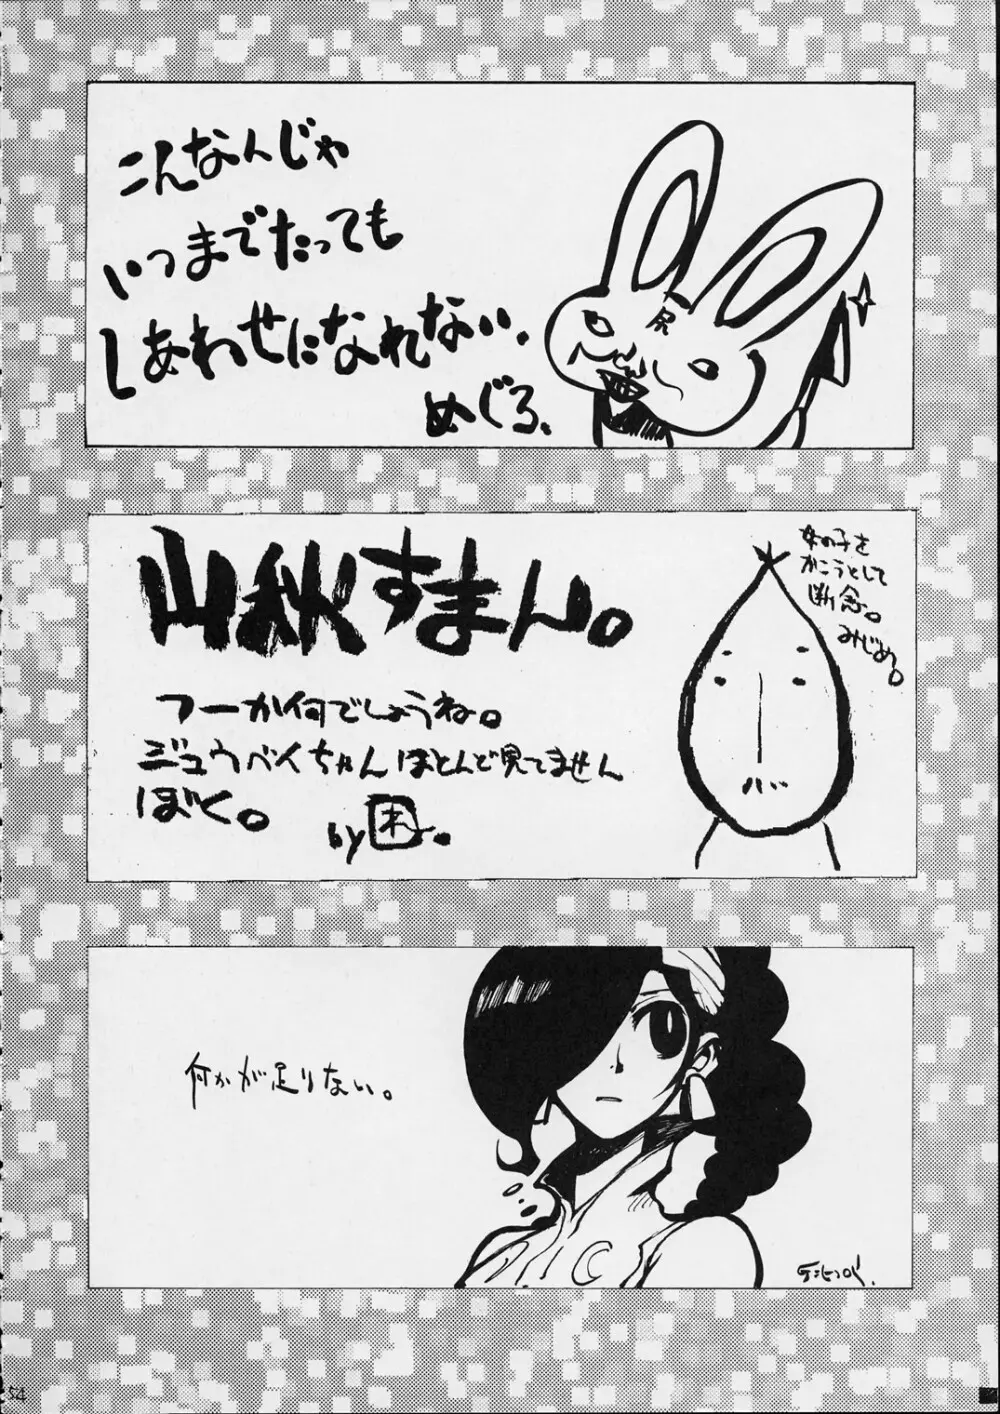 こんなんじゃ
いつまでたっても
しあわせになれない.
めぐる、
尻
山秋すまん。
フーか何でしょうね。
ジュウベイちゃんほとんど見てません
ぼく。
by 困。
女の子を
かこうとして
断念。
みじめ。
何かが足りない。
54